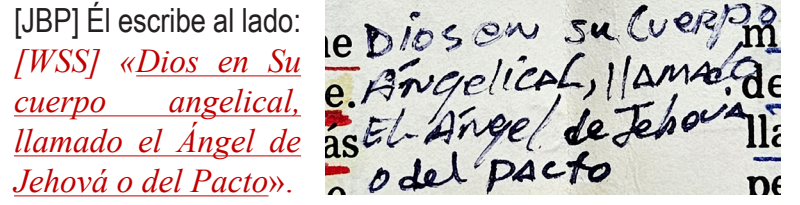 [JBP] Él escribe al lado:
[WSS] «Dios en Su
cuerpo angelical,
llamado el Ángel de
Jehová o del Pacto».
e Dios en su Cuerpo m
e. Angelical, llamado de
ás El Angel de Jehova lla
o del Pacto pe